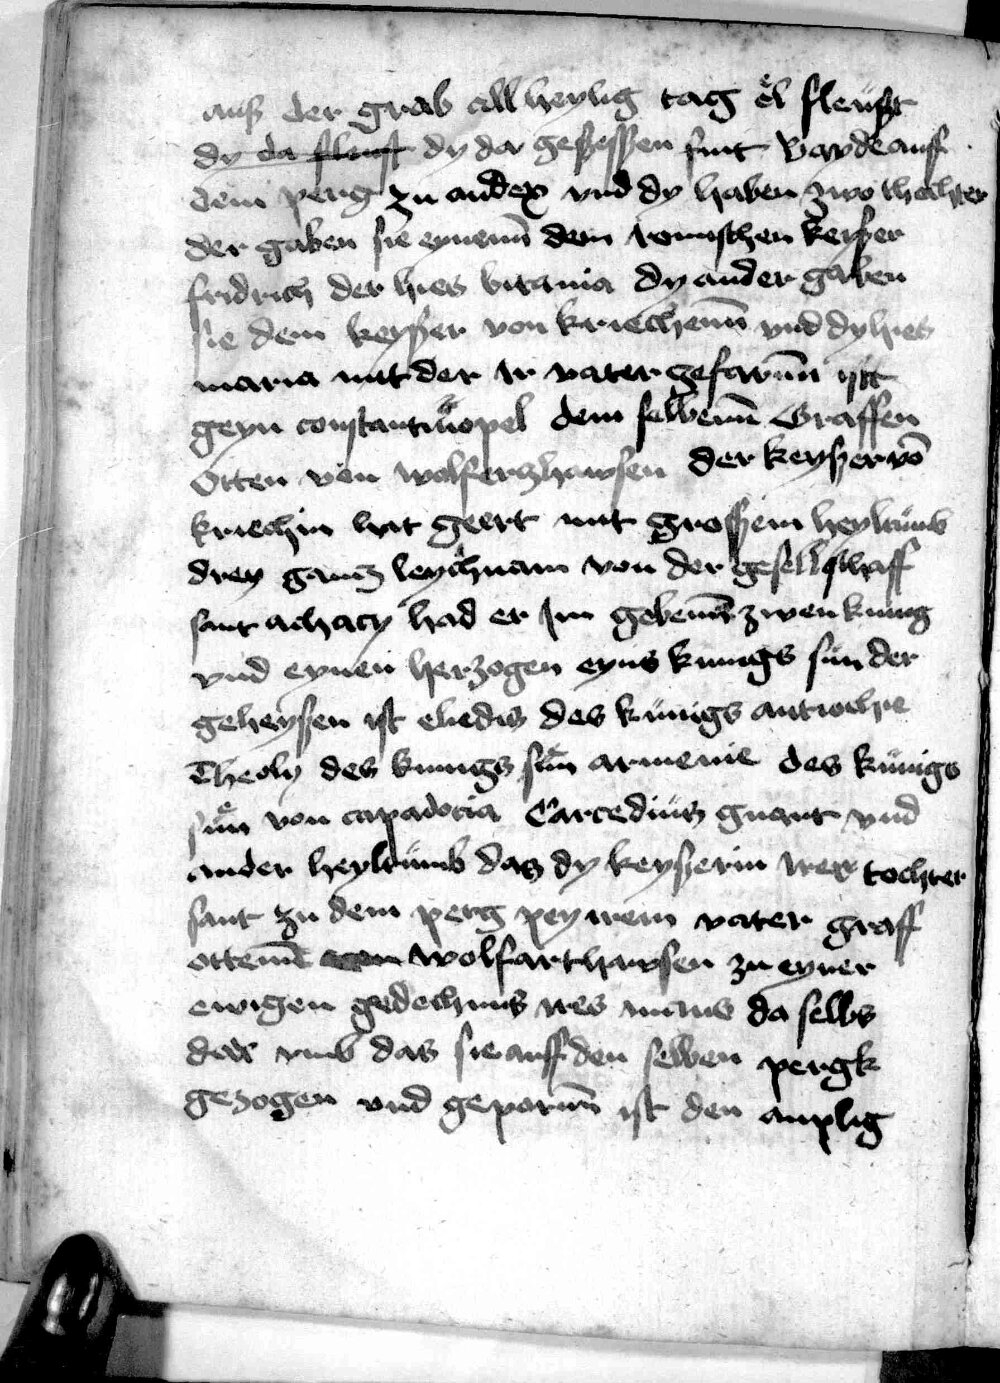 auß der grab all heylig tag öl fleüßt
dy da fleust dy da geßeßßen sint Bayde auff
dem perg zu andex vnd dy haben zwo thochter
der gaben sie eynenn dem romischen keyßer
fridrich der hies britania dy ander gaben
sie dem keyßer von kriechenn vnd dy hies
maria mit der ir vater gefarnn ist
geyn constantinopel dem selbenn Graffen
Otten von wolfertzhawsen der keyßer vo
kriechin hat geert mit großßem heyltumb
drey gantz leychnam von der gesellschaff
sant achacy had er Im gebenn zwen kunig
vnd eynen herzogen eyns kunigs sün der
geheysen ist eliedis des künigs antiochie
Theoly des kunigs sün armenie des künigs
sün von capadocia Carcedius gnant vnd
ander heyltümb das dy keyßerin irer tochter
sant zu dem perg pey irem vater graff
ottenn wolfarthawsen zu eyner
ewigen gedechnus ires mans da selbs
vmb das sie auff den selben pergk
gezogen vnd geporun ist den anplig